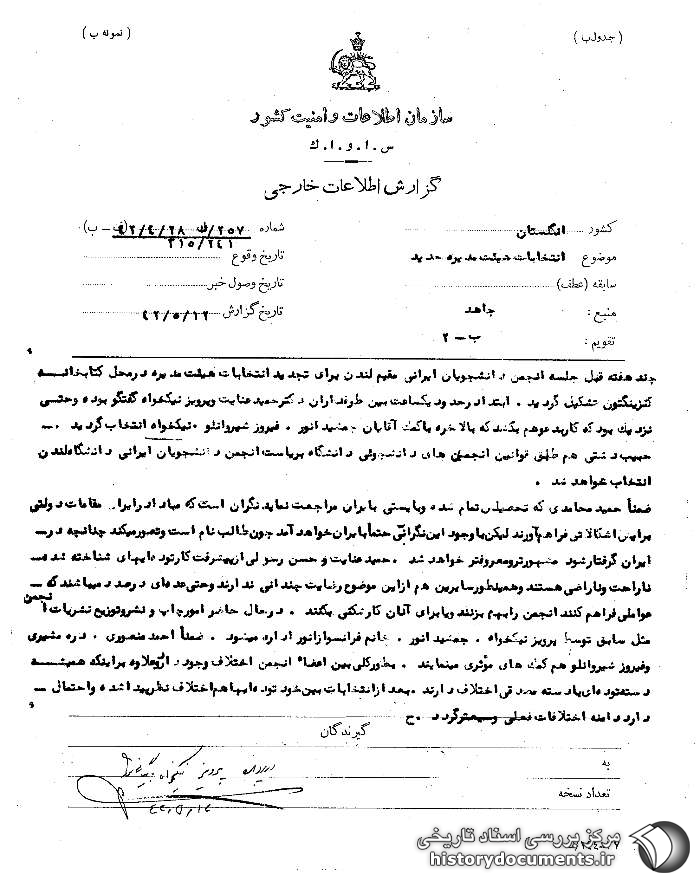 ( جدول ب )
( نمونه ب )
سازمان اطلاعات و امنیت کشور
س . ا . و . ا . ك
گزارش اطلاعات خارجی
کشور انگلستان
شماره ۲۵۷/ (ف - ب) ۴۲/۴/۲۸
۳۱۵/۲۴۱
موضوع انتخابات هیئت مدیره جدید
تاریخ وقوع
سابقه (عطف)
تاریخ وصول خبر
منبع : جاهد
تاریخ گزارش ۴۲/۵/۱۲
تقویم : ب - ۲
چند هفته قبل جلسه انجمن دانشجویان ایرانی مقیم لندن برای تجدید انتخابات هیئت مدیره در محل کتابخانه
کنزینگتون تشکیل گردید . ابتدا در حدود یکساعت بین طرفداران دکتر حمید عنایت و پرویز نیکخواه گفتگو بوده و حتی
نزدیك بود که کار بدعوا هم بکشد که بالاخره با کمك آقایان جمشید انور ، فیروز شیروانلو ، نیکخواه انتخاب گردید .
حبیب دشتی هم طبق قوانین انجمن های دانشجوئی دانشگاه بریاست انجمن دانشجویان ایرانی دانشگاه لندن
انتخاب خواهد شد .
ضمناً حمید محامدی که تحصیلش تمام شده و بایستی بایران مراجعت نماید نگران است که مبادا در ایران مقامات دولتی
برایش اشکالاتی فراهم آورند لیکن با وجود این نگرانی حتماً بایران خواهد آمد چون طالب نام است و تصور میکند چنانچه در
ایران گرفتار شود مشهورتر و معروفتر خواهد شد . حمید عنایت و حسن رسولی از پیشرفت کار توده ایهای شناخته شده
ناراحت و ناراضی هستند و همینطور سایرین هم از این موضوع رضایت چندانی ندارند و حتی عده ای درصدد میباشند که
عواملی فراهم کنند انجمن را بهم بزنند و یا برای آنان کارشکنی بکنند . در حال حاضر امور چاپ و نشر و توزیع نشریات انجمن
مثل سابق توسط پرویز نیکخواه ، جمشید انور ، خانم فرانسواز انور اداره میشود . ضمناً احمد منصوری ، دره مشیری
و فیروز شیروانلو هم کمك های مؤثری مینمایند . بطور کلی بین اعضاء انجمن اختلاف وجود دارد و علاوه بر اینکه همیشه
دسته توده ای با دسته مصدقی اختلاف دارند . بعد از انتخابات بین خود توده ایها هم اختلاف نظر پیدا شده و احتمال
دارد دامنه اختلافات فعلی وسیعتر گردد . ح
گیرندگان
به
تعداد نسخه
پرویز نیکخواه
مرکز بررسی اسناد تاریخی
historydocuments.ir